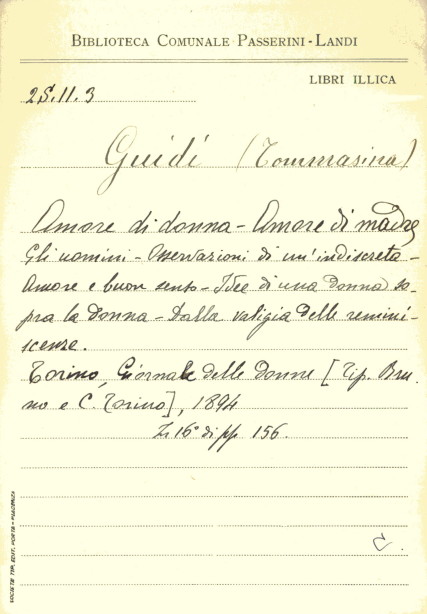 BIBLIOTECA COMUNALE PASSERINI-LANDI
LIBRI ILLICA
2S.11.3
Guidi (Tommasina)
Amore di donna - Amore di madre
Gli uomini - Osservazioni di un'indiscreta -
Amore e buon senso - Idee di una donna so-
pra la donna - Dalla valigia delle remini-
scenze.
Torino, Giornale delle donne [Tip. Bru-
no e C. Torino], 1894
In 16° di pp. 156.
C.